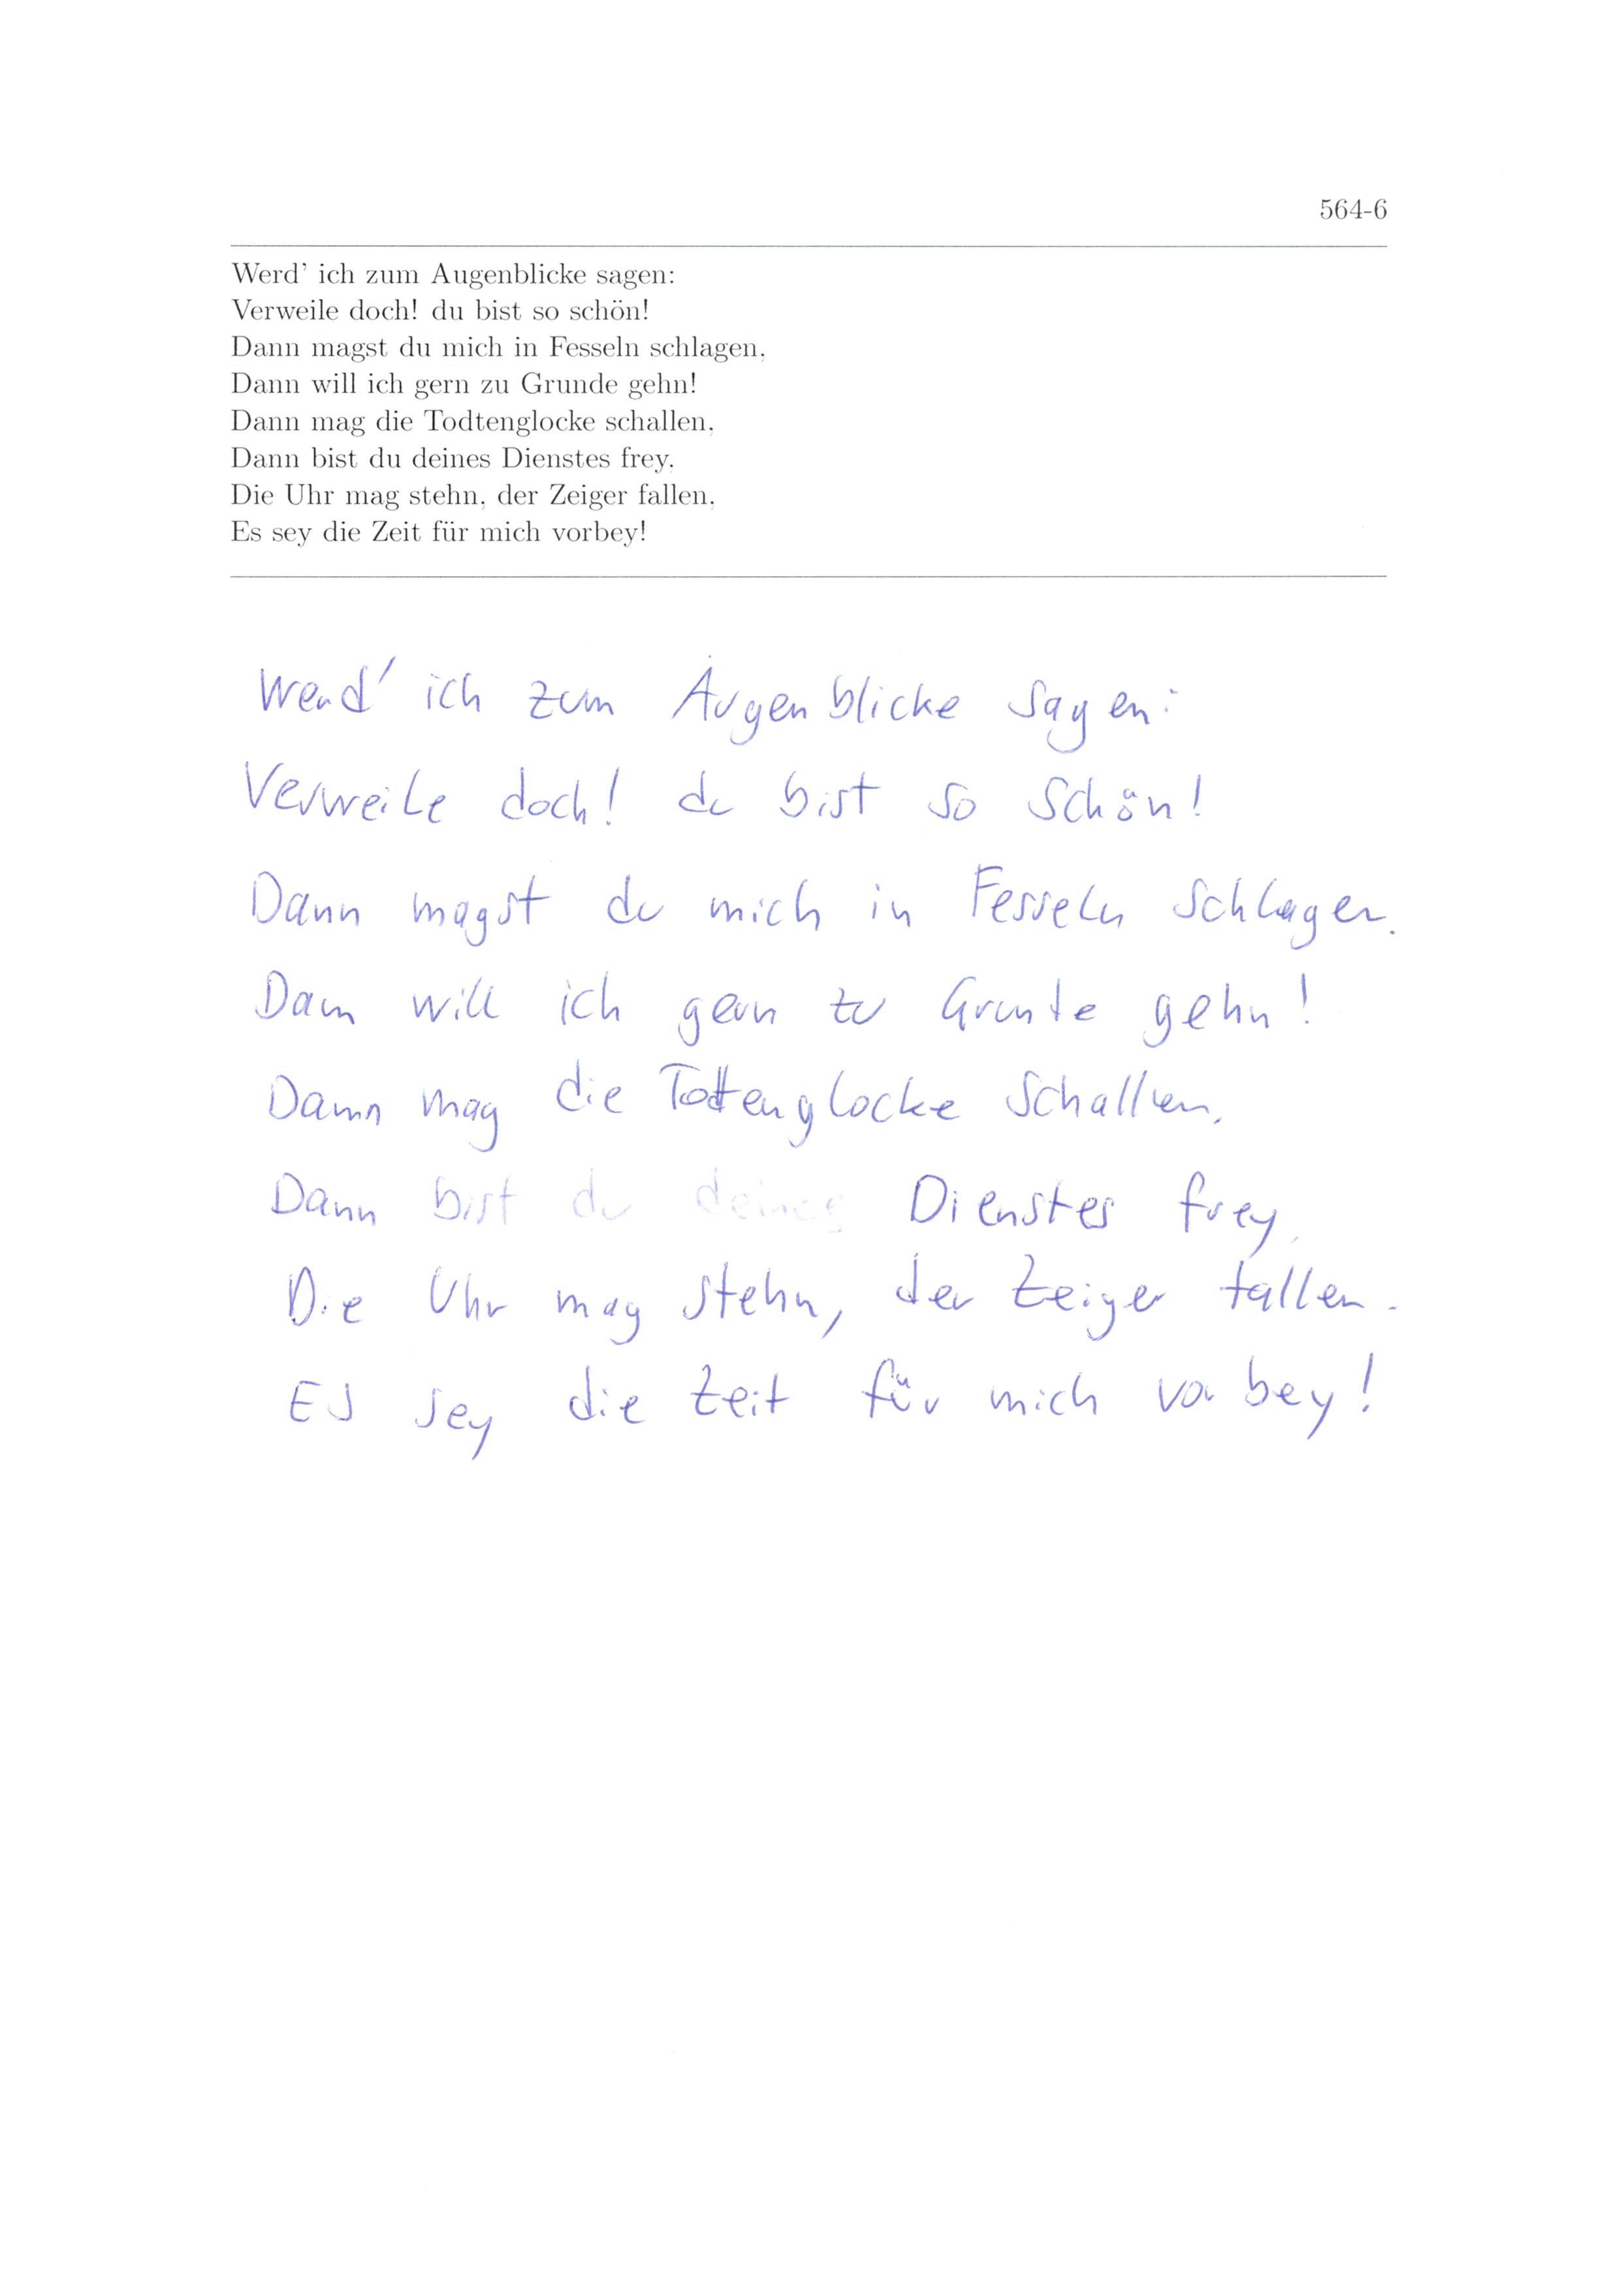 564-6
Werd' ich zum Augenblicke sagen:
Verweile doch! du bist so schön!
Dann magst du mich in Fesseln schlagen,
Dann will ich gern zu Grunde gehn!
Dann mag die Todtenglocke schallen,
Dann bist du deines Dienstes frey,
Die Uhr mag stehn, der Zeiger fallen,
Es sey die Zeit für mich vorbey!
Werd' ich zum Augenblicke sagen:
Verweile doch! du bist so schön!
Dann magst du mich in Fesseln schlagen.
Dann will ich gern zu Grunde gehn!
Dann mag die Todtenglocke schallen,
Dann bist du deines Dienstes frey,
Die Uhr mag stehn, der Zeiger fallen.
Es sey die Zeit für mich vorbey!